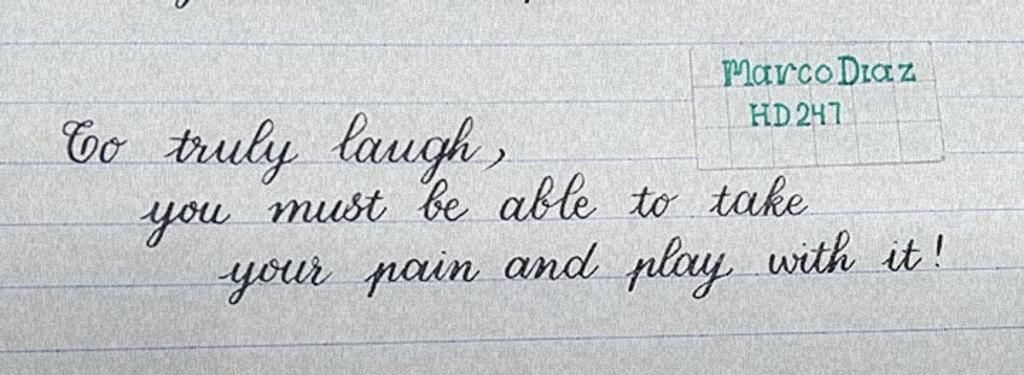 Marco Diaz
HD247
To truly laugh,
you must be able to take
your pain and play with it!